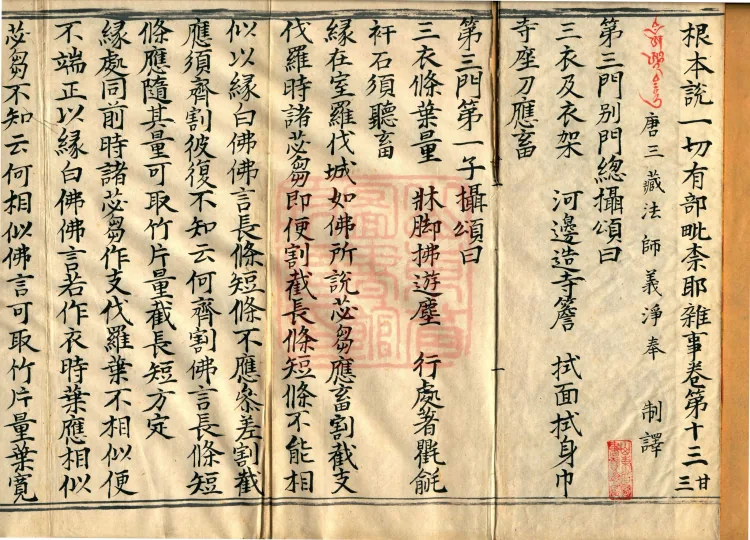 根本說一切有部毗柰耶雜事卷第十三 廿三
唐三藏法師義淨奉 制譯
第三門別門總攝頌曰
三衣及衣架 河邊造寺簷 拭面拭身巾
寺座刀應畜
第三門第一子攝頌曰
三衣條葉量 牀脚拂遊塵 行處著氍毹
衦石須聽畜
緣在室羅伐城如佛所說苾芻應畜割截支
伐羅時諸苾芻即便割截長條短條不能相
似以緣白佛佛言長條短條不應叅差割截
應須齊割彼復不知云何齊割佛言長條短
條應隨其量可取竹片量截長短方定
緣處同前時諸苾芻作支伐羅葉不相似便
不端正以緣白佛佛言若作衣時葉應相似
苾芻不知云何相似佛言可取竹片量葉寬